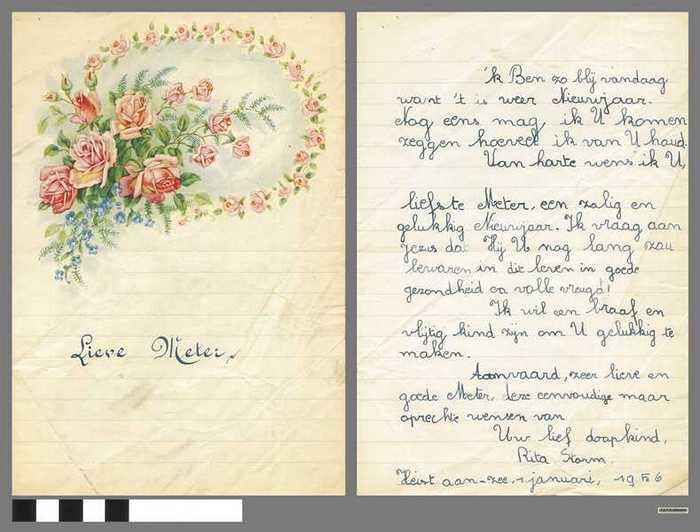 Lieve Meter,
'k Ben zo blij vandaag
want 't is weer Nieuwjaar.
Nog eens mag, ik U komen
zeggen hoeveel ik van U houd.
Van harte wens ik U,
liefste Meter, een zalig en
gelukkig Nieuwjaar. Ik vraag aan
Jezus dat Hij U nog lang zou
bewaren in dit leven in goede
gezondheid en volle vreugd!
Ik wil een braaf en
vlijtig kind zijn om U gelukkig te
maken.
Aanvaard, zeer lieve en
goede Meter, deze eenvoudige maar
oprechte wensen van
Uw lief doopkind,
Rita Storm.
Heist aan-zee, 1 januari, 19 6